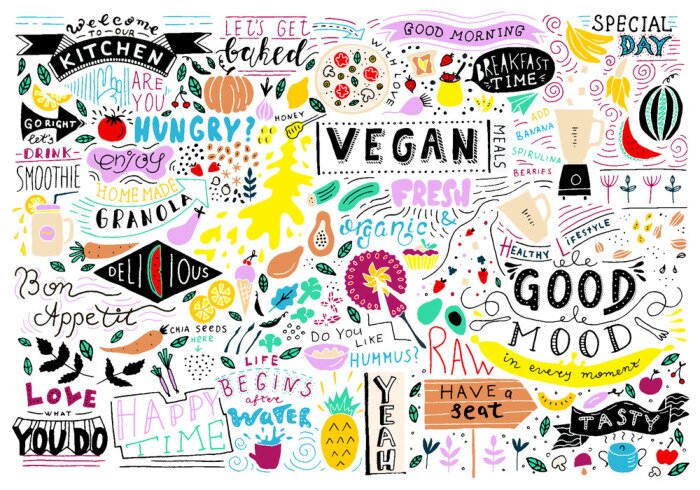 welcome
TO OUR
KITCHEN
ARE
YOU
HUNGRY?
LET'S GET
baked
WITH LOVE
GOOD MORNING
BREAKFAST
TIME
SPECIAL
DAY
GO RIGHT
let's
DRINK
SMOOTHIE
enjoy
HOMEMADE
GRANOLA
HONEY
VEGAN
MEALS
ADD
BANANA
SPIRULINA
BERRIES
FRESH
&
organic
HEALTHY LIFESTYLE
GOOD
MOOD
in every moment
DELICIOUS
Bon
Appetit
CHIA SEEDS
HERE
DO YOU
LIKE
HUMMUS?
RAW
LOVE
WHAT
YOU DO
HAPPY
TIME
LIFE
BEGINS
after
WATER
YEAH
HAVE a
seat
TASTY